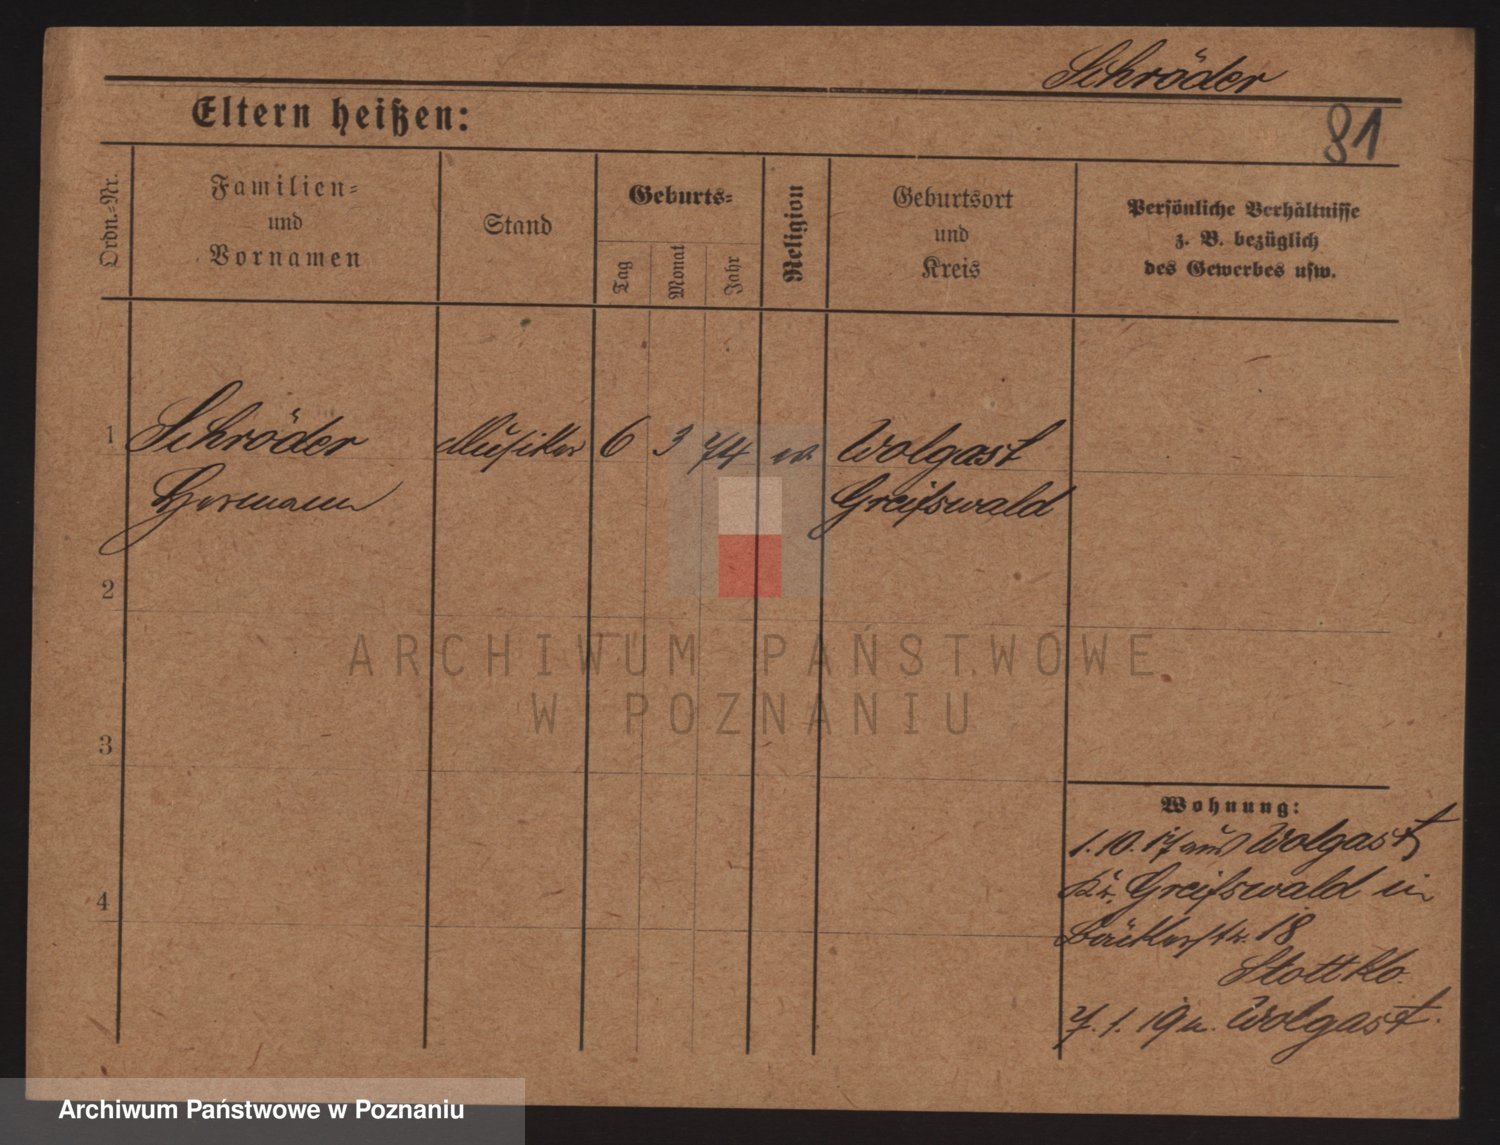 Schröder
Eltern heißen:
81
Ordn.-Nr.
Familien-
und
Vornamen
Stand
Geburts-
Tag
Monat
Jahr
Religion
Geburtsort
und
Kreis
Persönliche Verhältnisse
z. B. bezüglich
des Gewerbes usw.
1 Schröder Musiker 6 3 74 ev. Wolgast
Hermann Greifswald
2
3
4
Wohnung:
1.10.17 aus Wolgast
Kr. Greifswald in
Bäckerstr. 18
7.1.19 n. Wolgast.
ARCHIWUM PAŃSTWOWE
W POZNANIU
Archiwum Państwowe w Poznaniu